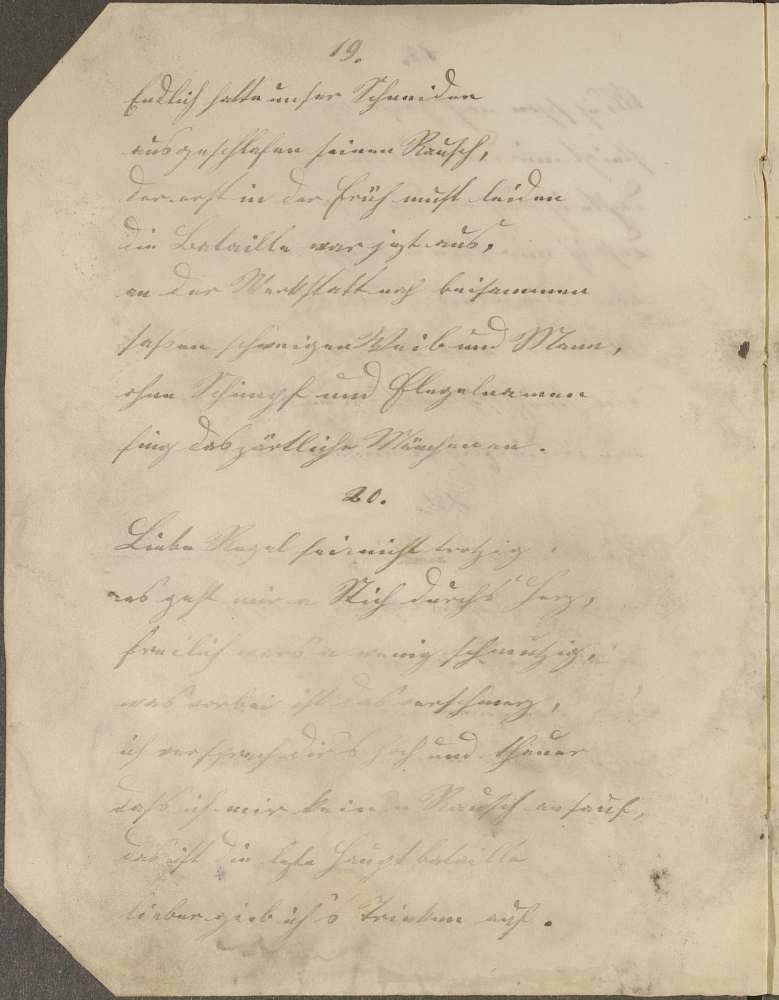 19.
Endlich hatte unser Schneider
ausgeschlafen seinen Rausch,
der erst in der früh must leiden
die Bataille war jezt aus,
an der Werkstatt noch beisammen
saßen schweigen Weib und Mann,
ohne Schimpf und Flegelnamen
fing das zärtliche Mänchen an.
20.
Liebe Regel sei nicht trotzig,
es geht mir a Stich durchs Herz,
freilich wars a wenig schmutzig,
was vorbei ist das verschmerz,
ich versprech dirs hoch und theuer
daß ich mir keinen Rausch ansauf,
das ist die lezte Hauptbataille
lieber gieb ich's Trinken auf.